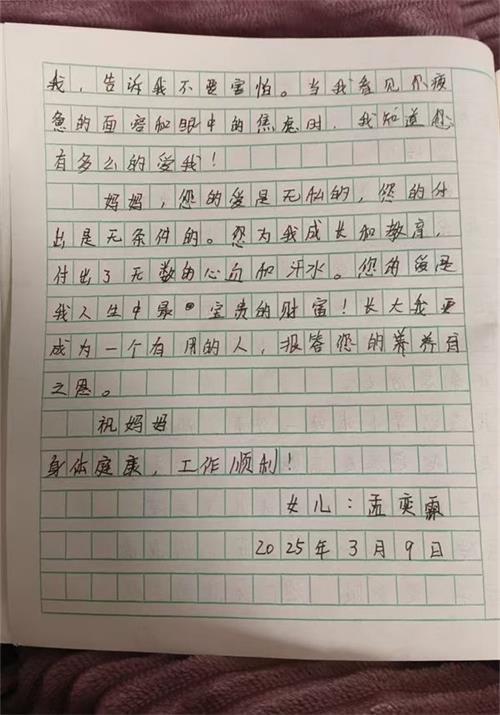 我，告诉我不要害怕。当我看见你疲
惫的面容和眼中的焦虑时，我知道您
有多么的爱我！
妈妈，您的爱是无私的，您的付
出是无条件的。您为我成长和教育，
付出了无数的心血和汗水。您的爱是
我人生中最宝贵的财富！长大我要
成为一个有用的人，报答您的养育
之恩。
祝妈妈
身体健康，工作顺利！
女儿：孟奕霖
2025年3月9日